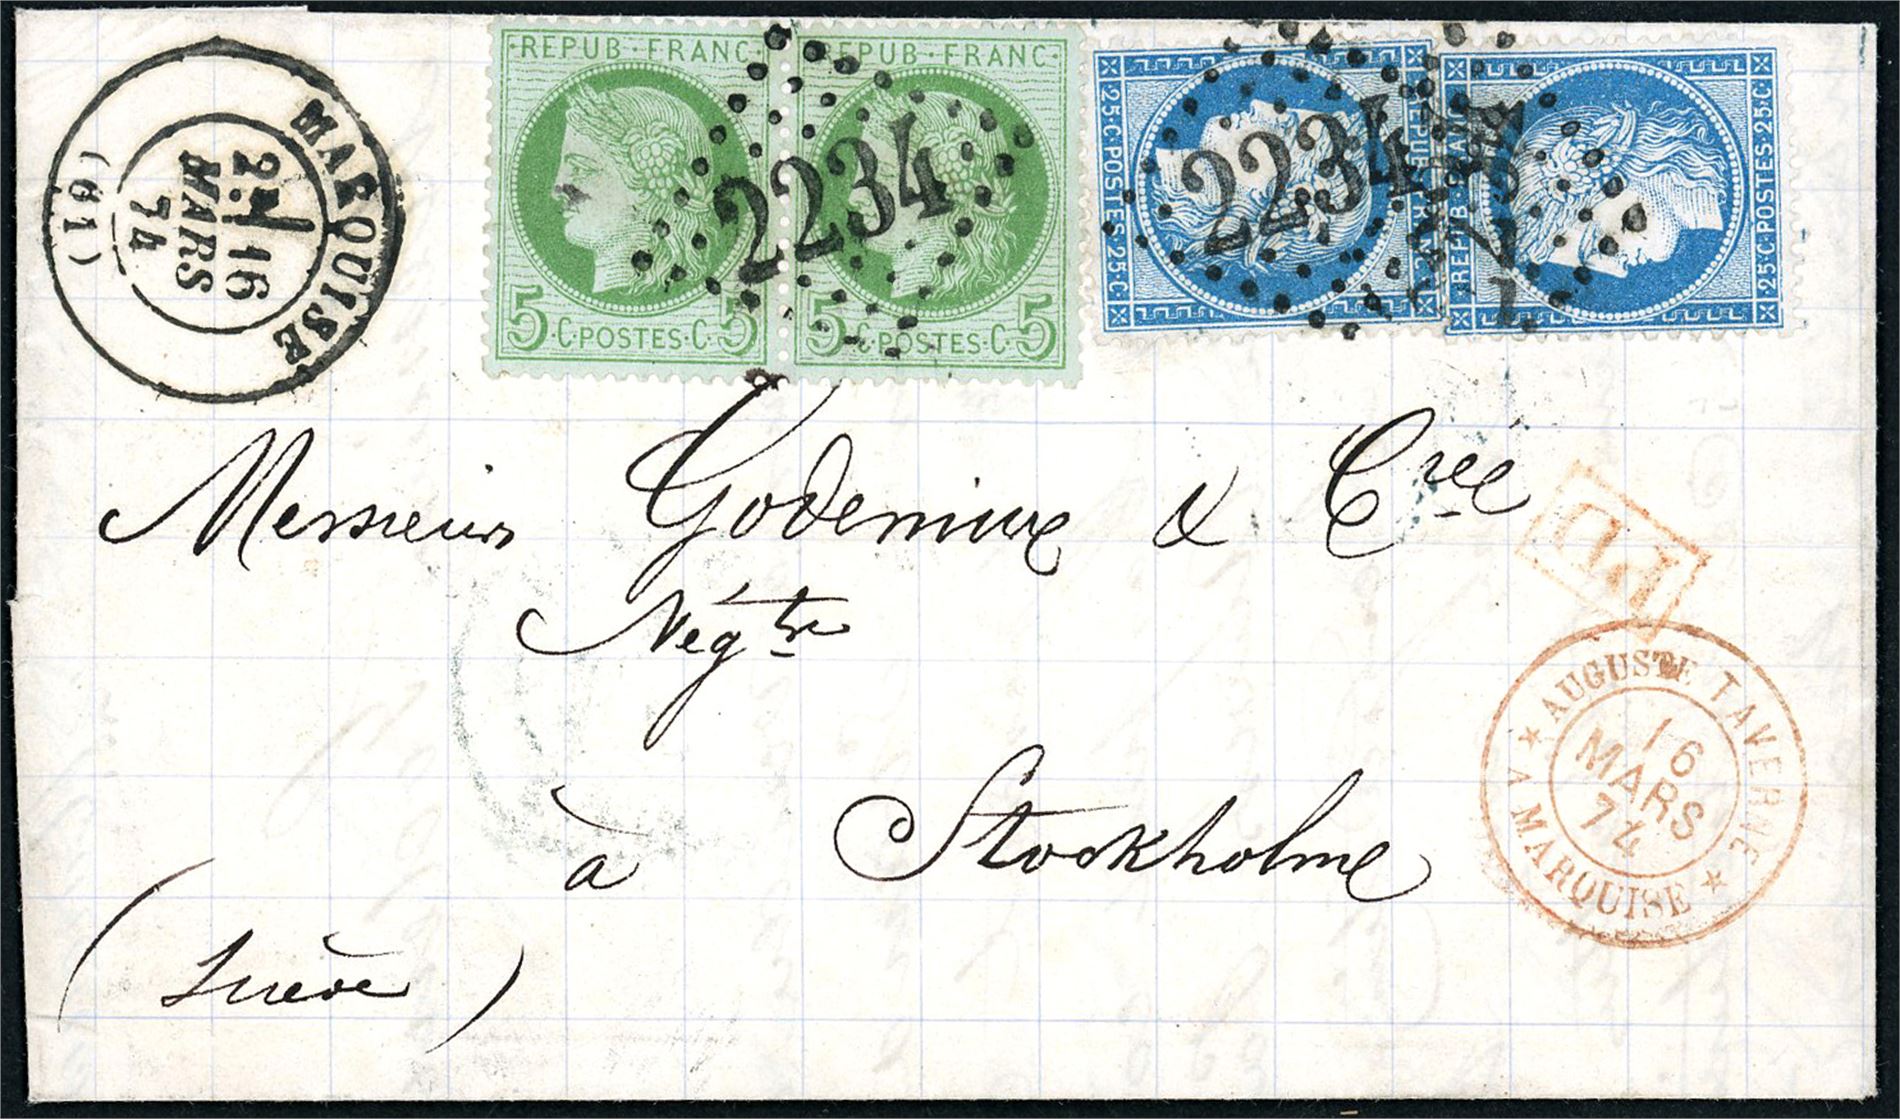 MARQUISE
2E
16
MARS
74
(61)
·REPUB·FRANC·
5·C·POSTES·C·5
REPUB·FRANC·
5·C·POSTES·C·5
2234
25·C·POSTES·25·C
REPUB·FRANC
2234
·REPUB·FRANC
·25·C·POSTES·25·C·
Messieurs Godenius & Cie
Négts
à Stockholme
(Suède)
PD
AUGUSTE TAVERNE
16
MARS
74
A MARQUISE